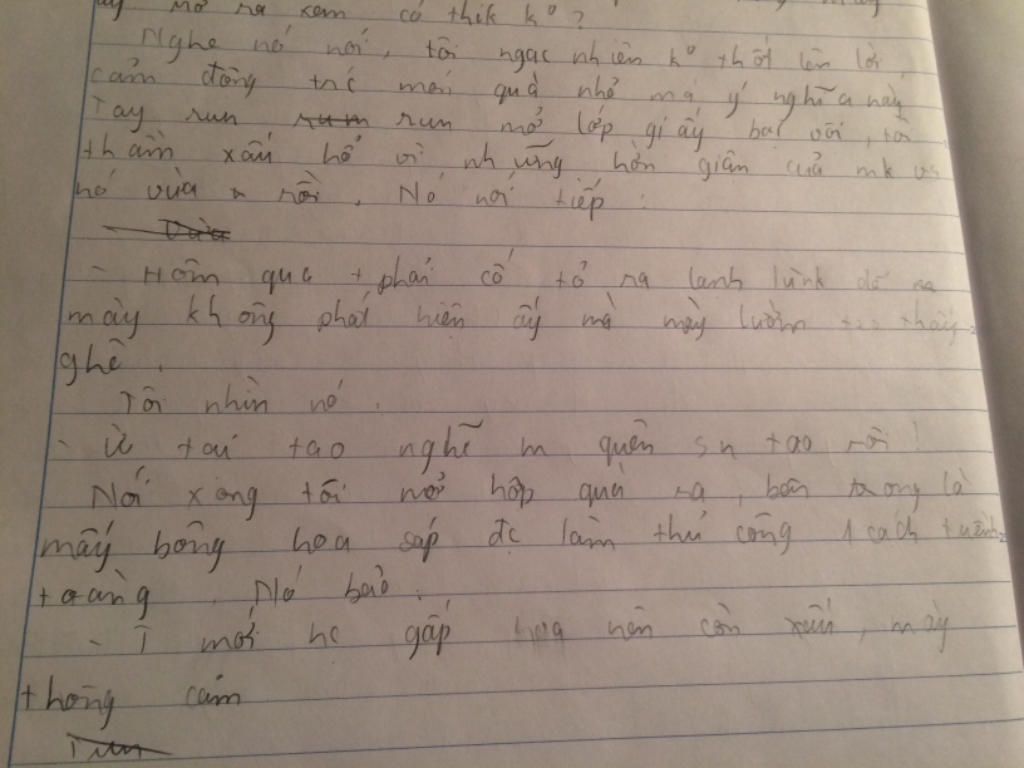 mở ra xem có thik k⁰?
Nghe nó nói, tôi ngạc nhiên k⁰ thốt lên lời,
cảm động trc món quà nhỏ mà ý nghĩa này
Tay run run run mở lớp giấy bai với, tôi
thầm xấu hổ vì những hờn giận của mk vs
nó vừa rồi. Nó nói tiếp:
- Hôm qua t phải cố tỏ ra lạnh lùnk để m
mày không phát hiện ấy mà mày lườm thấy
ghê.
Tôi nhìn nó.
- Ừ tại tao nghĩ m quên sn tao rồi!
Nói xong tôi mở hộp quà ra, bên trong là
mấy bông hoa sáp đc làm thủ công 1 cách
toàng. Nó bảo:
- T mới hc gấp hoa nên còn xấu, mày
thông cảm